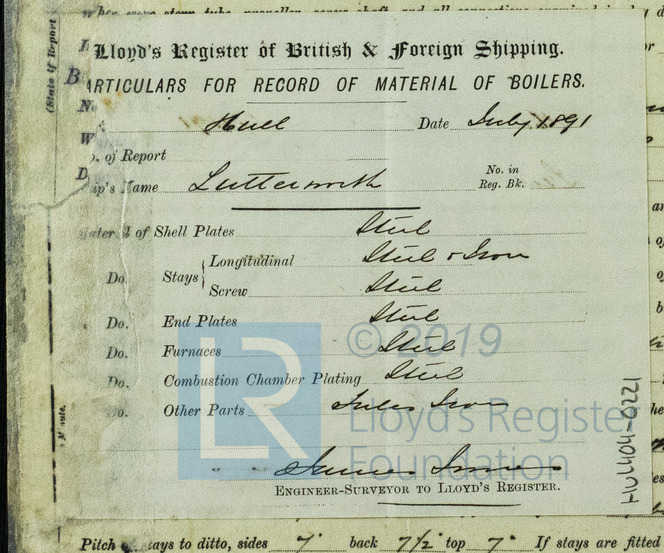 Lloyd's Register of British & Foreign Shipping.
PARTICULARS FOR RECORD OF MATERIAL OF BOILERS.
Hull Date July 1891
No. of Report
Ship's Name Lutterworth No. in Reg. Bk.
Material of Shell Plates Steel
Do. Stays { Longitudinal Steel & Iron
Screw Steel
Do. End Plates Steel
Do. Furnaces Steel
Do. Combustion Chamber Plating Steel
Do. Other Parts Tubes Iron
© 2019
LR Lloyd's Register
Foundation
James
ENGINEER-SURVEYOR TO LLOYD'S REGISTER.
HUL404-0221
(State if Report
Pitch of stays to ditto, sides 7" back 7½" top 7" If stays are fitted